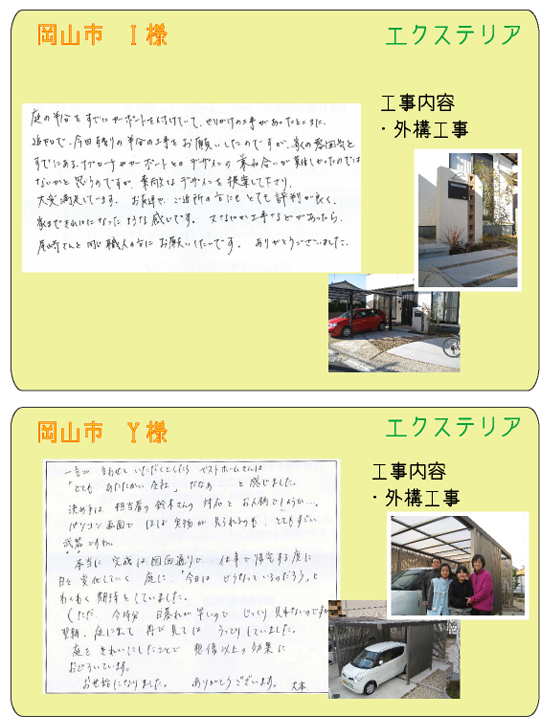 岡山市 I様
エクステリア
庭の半分をすでにカーポートを付けていて、やりかけの工事があったところに、
追加で、今回残りの半分の工事をお願いしたのですが、家の雰囲気と
すでにある、カーポートとのデザインの兼ね合いが難しかったのでは
ないかと思うのですが、素敵なデザインを提案して下さり、
大変満足しています。お友達や、ご近所の方にもとても評判が良く、
家まできれいになったような感じです。又なにか工事などがあったら、
尾崎さんと同じ職人の方にお願いしたいです。ありがとうございました。
工事内容
・外構工事
岡山市 Y様
エクステリア
一言で 言わせて いただくとしたら ベストホームさんは
「とても あたたかい 会社」だなぁ…と 感じました。
決め手は、担当者の鈴木さんの 対応と お人柄でしょうか…。
パソコン画面で ほぼ 実物が 見られるのも、とてもすごい
武器ですね。
本当に 完成は図面通りで、仕事で帰宅する度に
日々 変化していく 庭に、「今日は どうなっているのだろう」と
わくわく 期待をしていました。
(ただ、今時分 日暮れが早いので じっくり 見れないのですが)
翌朝、庭に出て 再び見ては うっとりしていました。
庭を きれいにしたことで 想像以上の効果に
おどろいています。
お世話になりました。 ありがとうございます。
工事内容
・外構工事